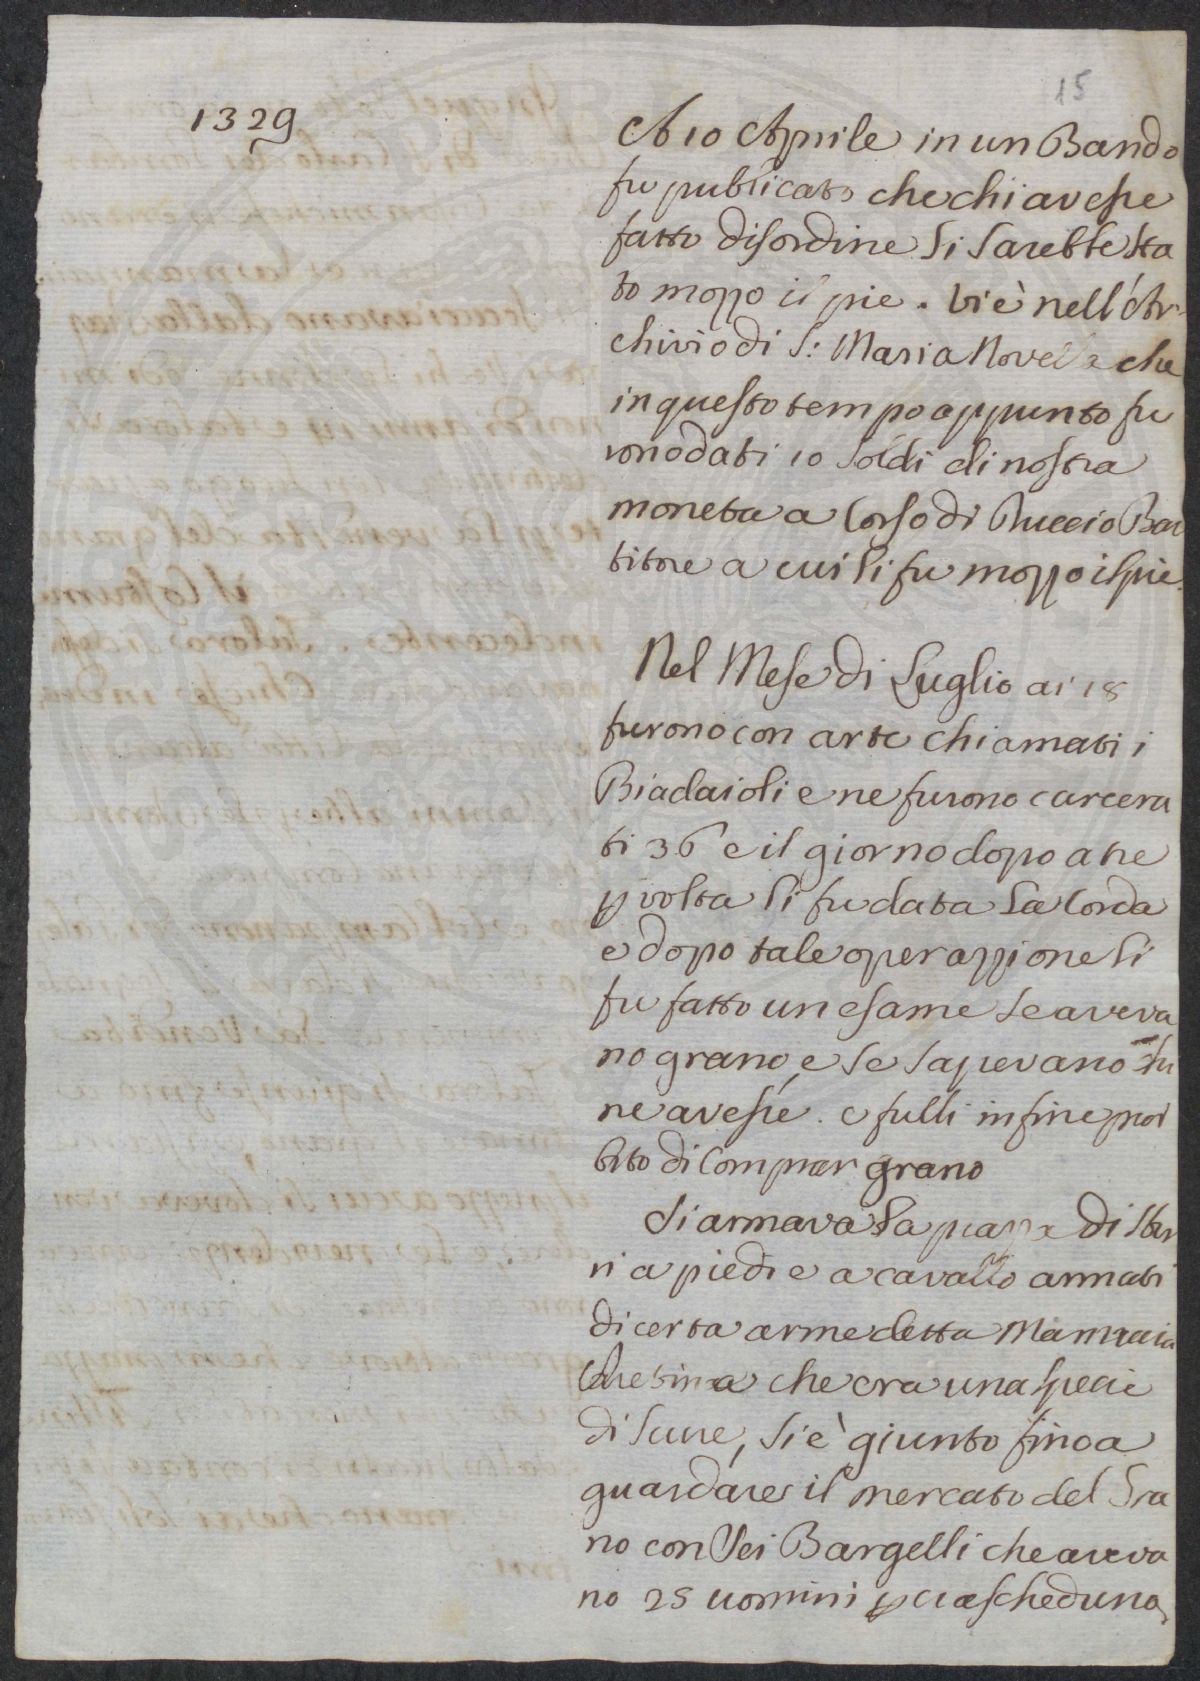 15
1329
A 10 Aprile in un Bando
fu publicato che chi avesse
fatto disordine li sarebbe sta
to mozzo il pie. Vi è nell'Ar-
chivio di S: Maria Novella che
in questo tempo appunto fu
rono dati 10 soldi di nostra
moneta a Corso di Puccio Bar
titore a cui li fu mozzo il pie.
Nel Mese di Luglio ai 18
furono con arte chiamati i
Biadaioli e ne furono carcera
ti 36 e il giorno dopo a tre
p volta li fu data la Corda
e dopo tale operazzione li
fu fatto un esame se aveva
no grano, e se sapevano chi
ne avesse. e fulli infine proi
bito di Comprar grano
Si armava la piazza di Sbir
ri a piedi e a cavallo armati
di certa arme detta Mannaia
che era una specie
di scure, si è giunto fino a
guardare il mercato del Gra
no con Sei Bargelli che aveva
no 25 uomini p ciascheduno,